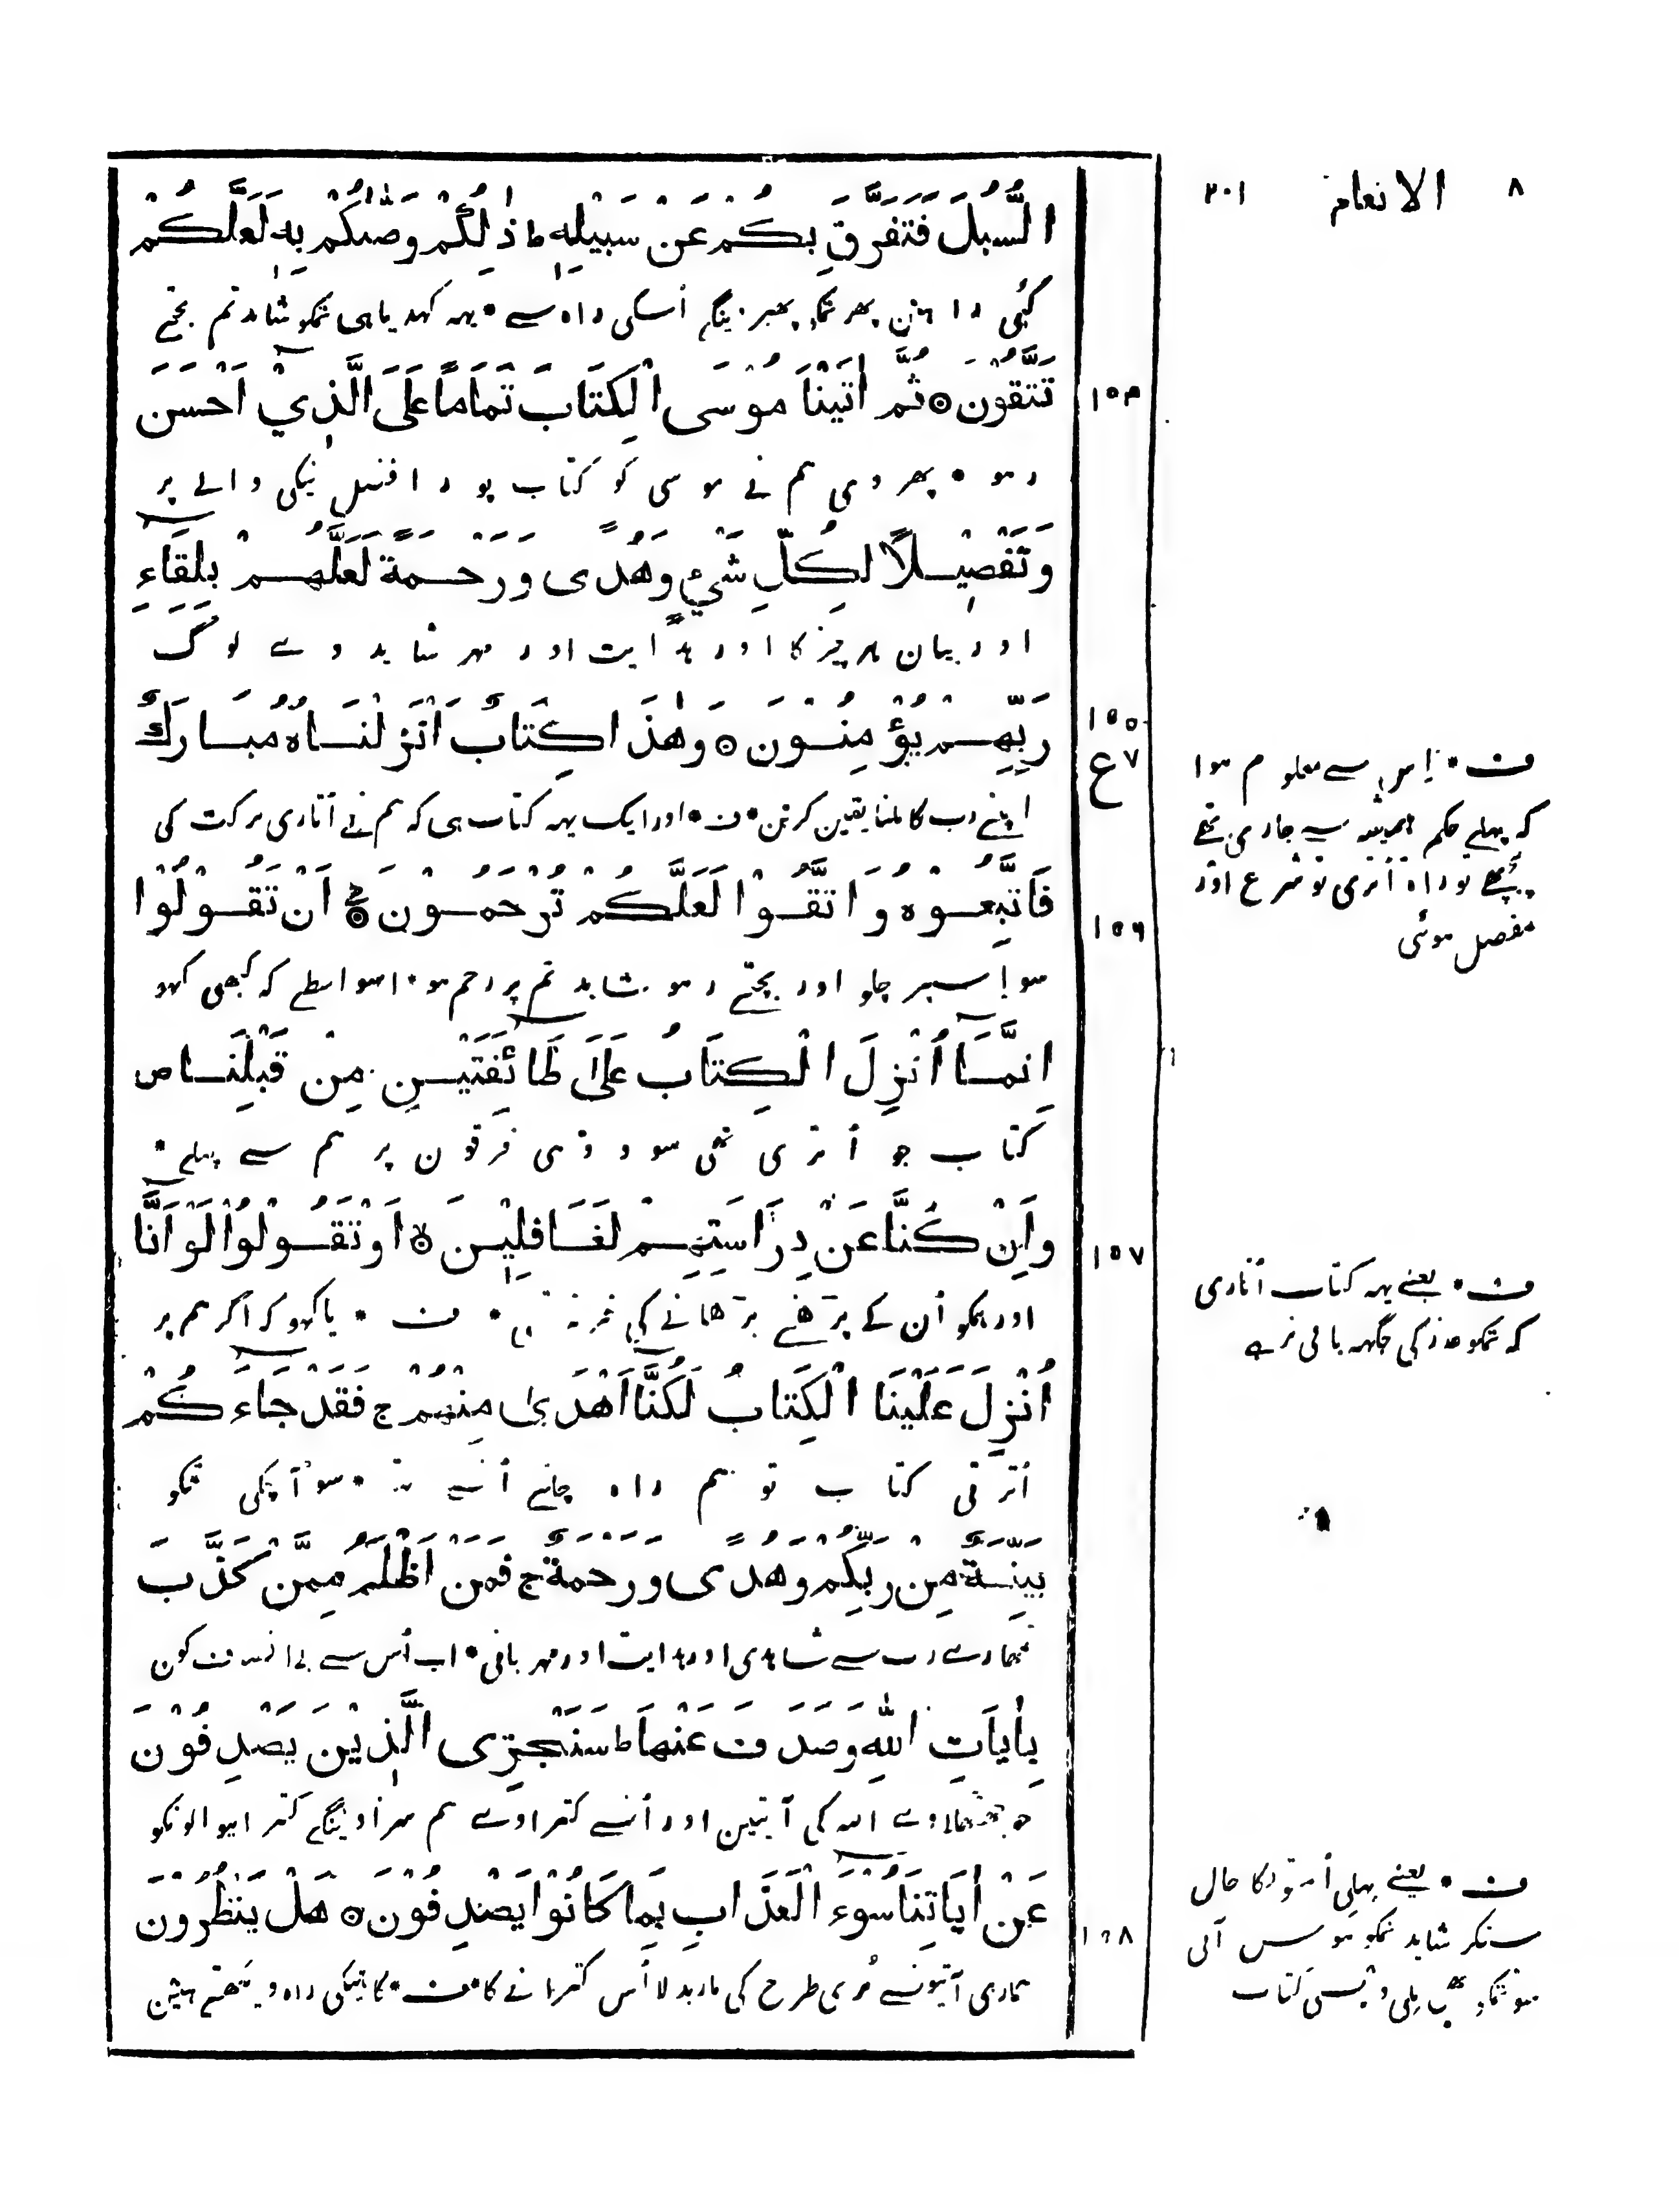 ٨ الانعام ٢٠١
السُّبُلَ فَتَفَرَّقَ بِكُمْ عَنْ سَبِيْلِهٖ ط ذٰلِكُمْ وَصّٰىكُمْ بِهٖ لَعَلَّكُمْ
كئی راہین پھر تمکو پھیر دینگے اُسکی راہ سے • یہہ کہدیا ہی تمکو شاید تم بچتے
تَتَّقُوْنَ ۞ ثُمَّ اٰتَيْنَا مُوْسَى الْكِتَابَ تَمَامًا عَلَى الَّذِيْ اَحْسَنَ
١٥٤
رہو • پھر دی ہم نے موسی کو کتاب پورا فضل نیکی والے پر
وَتَفْصِيْلًا لِكُلِّ شَيْءٍ وَهُدًى وَرَحْمَةً لَعَلَّهُمْ بِلِقَاءِ
اور بیان ہر چیز کا اور ہدایت اور مہر شاید وے لوگ
رَبِّهِمْ يُؤْمِنُوْنَ ۞ وَهٰذَا كِتَابٌ اَنْزَلْنَاهُ مُبَارَكٌ
١٥٥
٧ ع
اپنے رب کا ملنا یقین کرین • ف • اور ایک یہہ کتاب ہی کہ ہم نے اُتاری برکت کی
فَاتَّبِعُوْهُ وَاتَّقُوْا لَعَلَّكُمْ تُرْحَمُوْنَ ۞ اَنْ تَقُوْلُوْا
١٥٦
سو اِسپر چلو اور بچتے رہو شاید تم پر رحم ہو • اسواسطے کہ کبھی کہو
اِنَّمَا اُنْزِلَ الْكِتَابُ عَلَى طَائِفَتَيْنِ مِنْ قَبْلِنَا ص
کتاب جو اُتری تھی سو دو ہی فرقون پر ہم سے پہلے •
وَاِنْ كُنَّا عَنْ دِرَاسَتِهِمْ لَغَافِلِيْنَ ۞ اَوْ تَقُوْلُوْا لَوْ اَنَّا
١٥٧
اور ہمکو اُن کے پڑھنے پڑھانے کی خبر نہ تھی • ف • یا کہو کہ اگر ہم پر
اُنْزِلَ عَلَيْنَا الْكِتَابُ لَكُنَّا اَهْدٰى مِنْهُمْ ج فَقَدْ جَاءَكُمْ
اُترتی کتاب تو ہم راہ چلتے اُنسے • سو آچکی تمکو
بَيِّنَةٌ مِنْ رَبِّكُمْ وَهُدًى وَرَحْمَةٌ ج فَمَنْ اَظْلَمُ مِمَّنْ كَذَّبَ
تمہارے رب سے شاہدی اور ہدایت اور مہربانی • اب اُس سے بے انصاف کون
بِاٰيَاتِ اللّٰهِ وَصَدَفَ عَنْهَا ط سَنَجْزِى الَّذِيْنَ يَصْدِفُوْنَ
جو جھٹھلاوے اللہ کی آیتین اور اُنسے کتراوے ہم سزا دینگے کترانیوالونکو
عَنْ اٰيَاتِنَا سُوْءَ الْعَذَابِ بِمَا كَانُوْا يَصْدِفُوْنَ ۞ هَلْ يَنْظُرُوْنَ
١٥٨
ہماری آیتونسے بُری طرح کی مار بدلا اُس کترانے کا • ف • کاہیکی راہ دیکھتے ہین
ف • اِس سے معلوم ہوا
کہ پہلے حکم ہمیشہ سے جاری تھے
پیچھے توراۃ اُتری تو شرع اور
مفصل ہوئی
ف • یعنے یہہ کتاب اُتاری
کہ تمکو عذر کی جگہہ باقی نرہے
ف • یعنے پہلی اُمتونکا حال
سنکر شاید تمکو ہوس آتی
سو تمکو بھی ملی کتاب